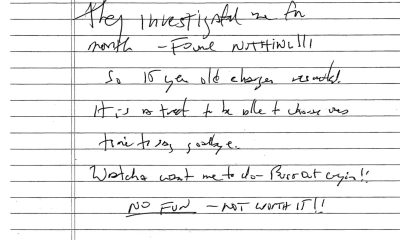 They investigated me for
month - FOUND NOTHING!!!
So 10 year old charges resulted.
It is a treat to be able to choose ones
time to say goodbye.
Watcha want me to do - Burst out cryin!!
NO FUN - NOT WORTH IT!!